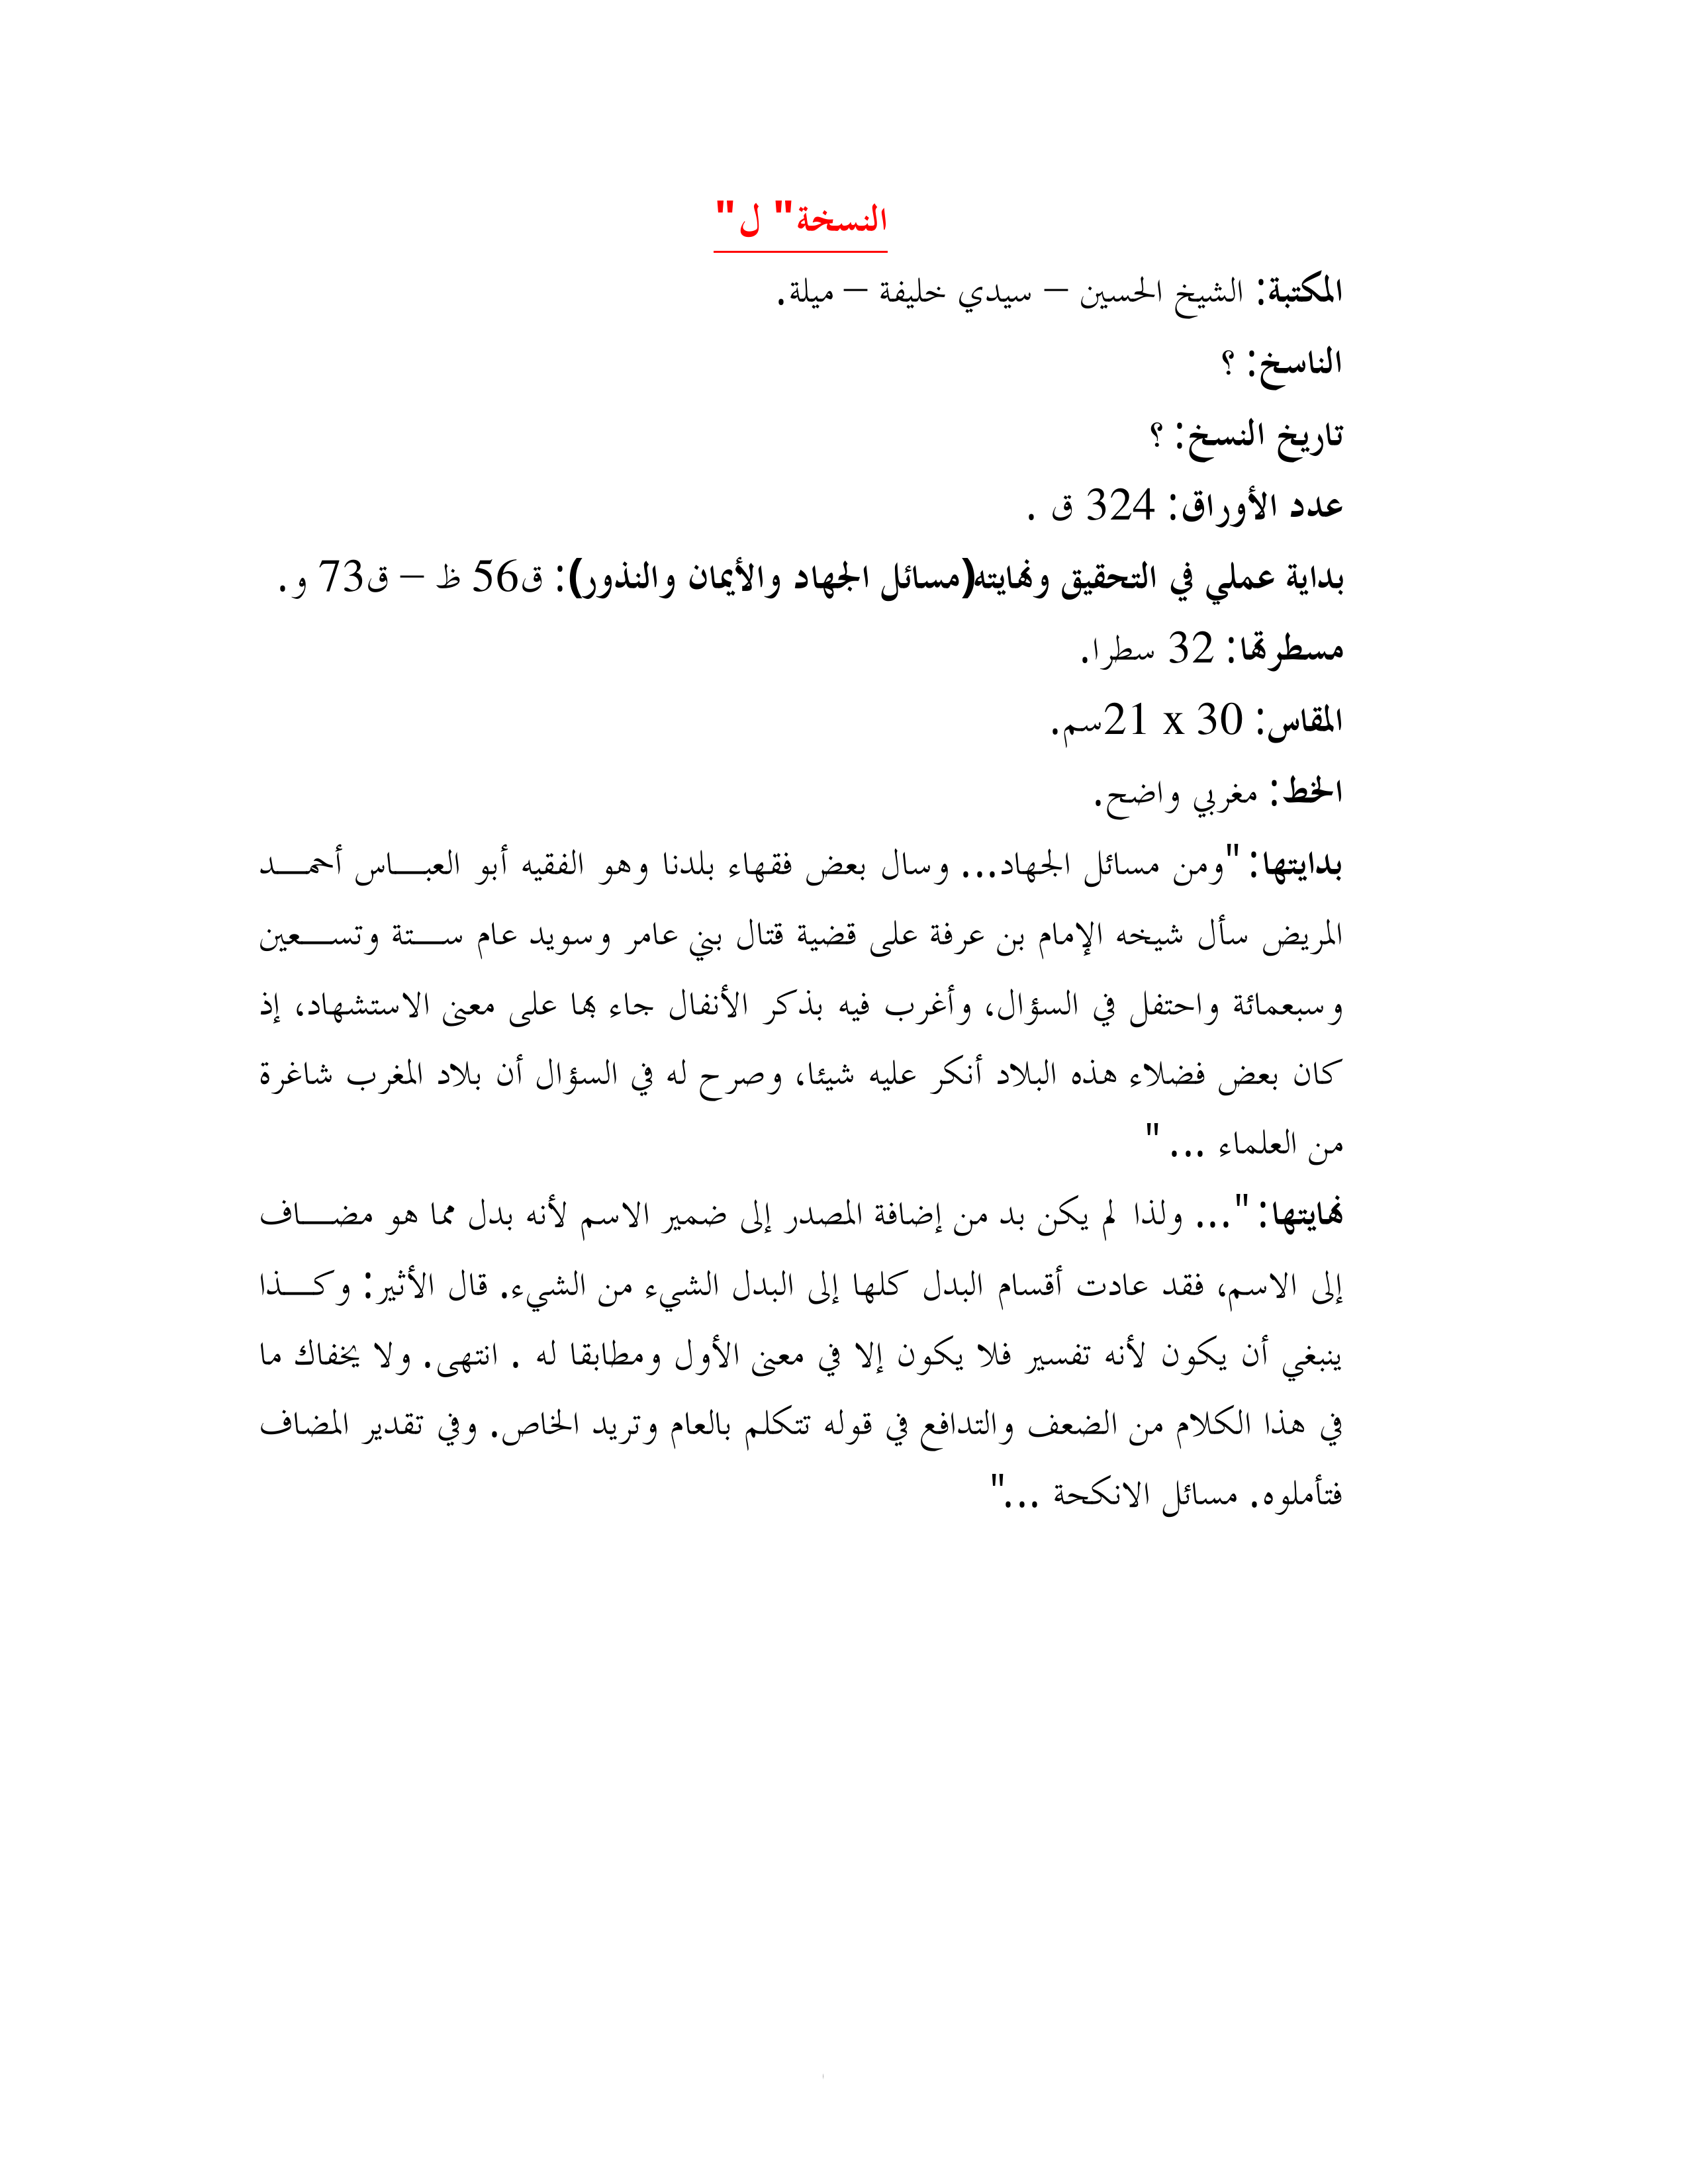 النسخة" ل"
المكتبة: الشيخ الحسين – سيدي خليفة – ميلة.
الناسخ: ؟
تاريخ النسخ: ؟
عدد الأوراق: 324 ق .
بداية عملي في التحقيق ونهايته(مسائل الجهاد والأيمان والنذور): ق56 ظ – ق73 و.
مسطرتها: 32 سطرا.
المقاس: 30 x 21سم.
الخط: مغربي واضح.
بدايتها: "ومن مسائل الجهاد... وسال بعض فقهاء بلدنا وهو الفقيه أبو العباس أحمد
المريض سأل شيخه الإمام بن عرفة على قضية قتال بني عامر وسويد عام ستة وتسعين
وسبعمائة واحتفل في السؤال، وأغرب فيه بذكر الأنفال جاء بها على معنى الاستشهاد، إذ
كان بعض فضلاء هذه البلاد أنكر عليه شيئا، وصرح له في السؤال أن بلاد المغرب شاغرة
من العلماء ... "
نهايتها: "... ولذا لم يكن بد من إضافة المصدر إلى ضمير الاسم لأنه بدل مما هو مضاف
إلى الاسم، فقد عادت أقسام البدل كلها إلى البدل الشيء من الشيء. قال الأثير: وكذا
ينبغي أن يكون لأنه تفسير فلا يكون إلا في معنى الأول ومطابقا له . انتهى. ولا يخفاك ما
في هذا الكلام من الضعف والتدافع في قوله تتكلم بالعام وتريد الخاص. وفي تقدير المضاف
فتأملوه. مسائل الانكحة ..."